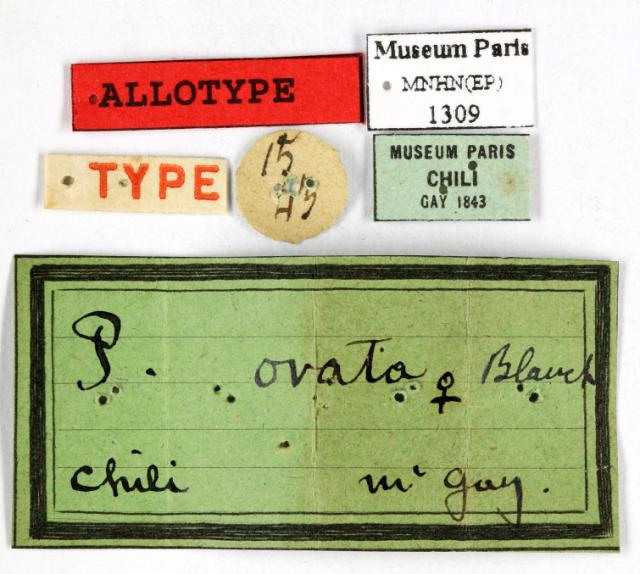 ALLOTYPE
Museum Paris
MNHN(EP)
1309
TYPE
15
43
MUSEUM PARIS
CHILI
GAY 1843
P. ovata ♀ Blanch
Chili Mr Gay.